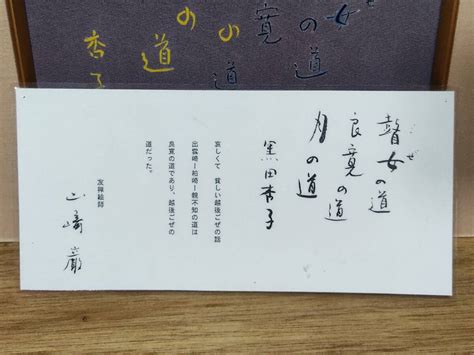 女ぜの道
寛の道
の道
杏子
瞽女ぜの道
良寛の道
月の道
黒田杏子
哀しくて 貧しい越後ごぜの路
出雲崎ー柏崎ー親不知の道は
良寛の道であり、越後ごぜの
道だった。
友禅絵師
山﨑巌